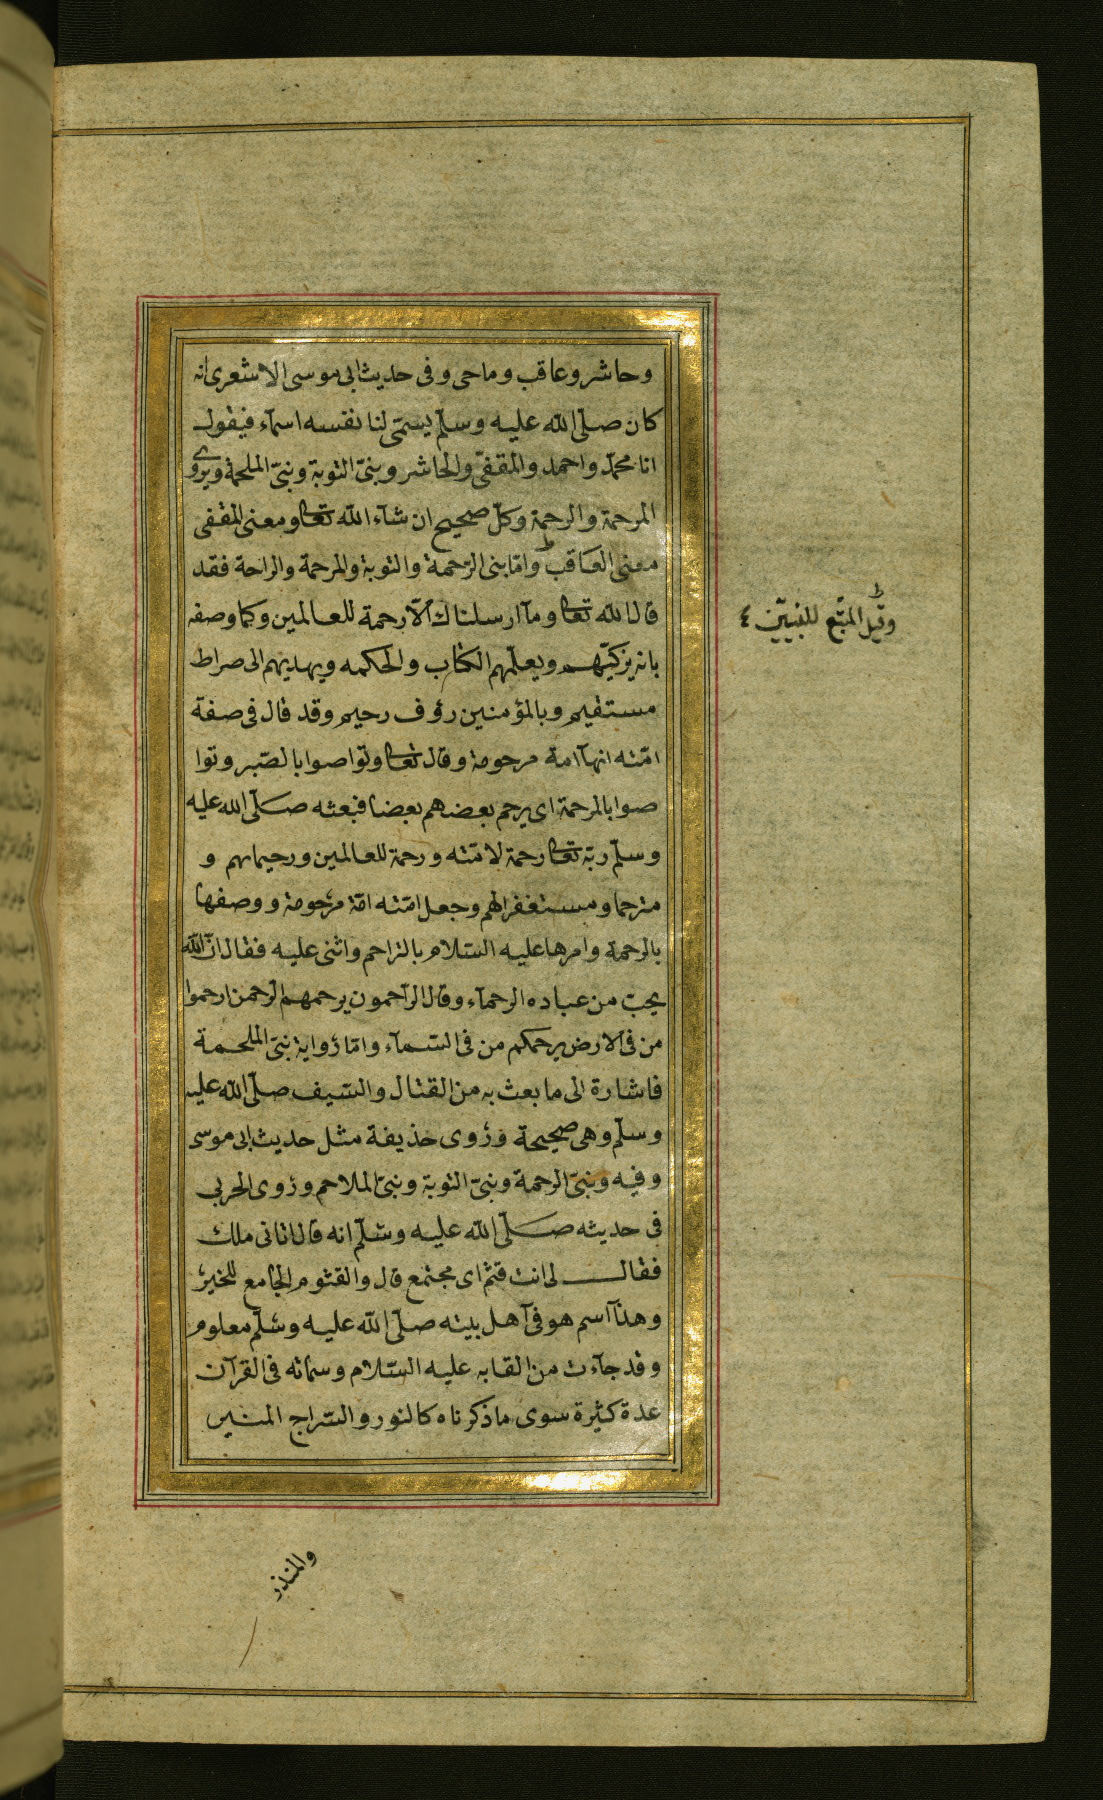 وحاشر وعاقب وماحى وفى حديث ابى موسى الاشعرى انه
كان صلّى الله عليه وسلّم يسمّى لنا نفسه اسمآء فيقول
انا محمّد واحمد والمقفّى والحاشر ونبىّ التوبة ونبىّ الملحمة ويروى
المرحمة والرحمة وكلّ صحيح ان شآء الله تعالى ومعنى المقفى
معنى العاقب وامّا نبى الرّحمة والتوبة والمرحمة والراحة فقد
قال الله تعالى ومآ ارسلناك الّا رحمة للعالمين وكما وصفه
بانه يزكيّهم ويعلّمهم الكتاب والحكمه ويهديهم الى صراط
مستقيم وبالمؤمنين رؤف رحيم وقد قال فى صفة
امّته انهآ امة مرحومة وقال تعالى وتواصوا بالصّبر وتوا
صوا بالمرحمة اى يرحم بعضهم بعضا فبعثه صلّى الله عليه
وسلّم ربّه تعالى رحمة لامّته ورحمة للعالمين ورحيما بهم و
مترحما ومستغفرا لهم وجعل امّته امّة مرحومة ووصفها
بالرحمة وامرها عليه السّلام بالتراحم واثنى عليه فقال انّ الله
يحبّ من عباده الرحمآء وقال الرآحمون يرحمهم الرحمن ارحموا
من فى الارض يرحمكم من فى السّمآء وامّا رواية نبىّ الملحمة
فاشارة الى ما بعث به من القتال والسّيف صلّى الله عليه
وسلّم وهى صحيحة وروى حذيفة مثل حديث ابى موسى
وفيه ونبىّ الرحمة ونبىّ التوبة ونبىّ الملاحم وروى الحربى
فى حديثه صلّى الله عليه وسلّم انه قال اتانى ملك
فقال لى انت قثم اى مجتمع قال والقثوم الجامع للخير
وهذآ اسم هو فى آهل بيته صلّى الله عليه وسلّم معلوم
وقد جآءت من القابه عليه السّلام وسماته فى القرآن
عدة كثيرة سوى ما ذكرناه كالنور والسّراج المنير
وقيل المتّبع للنبيّين ٤
والمنذر